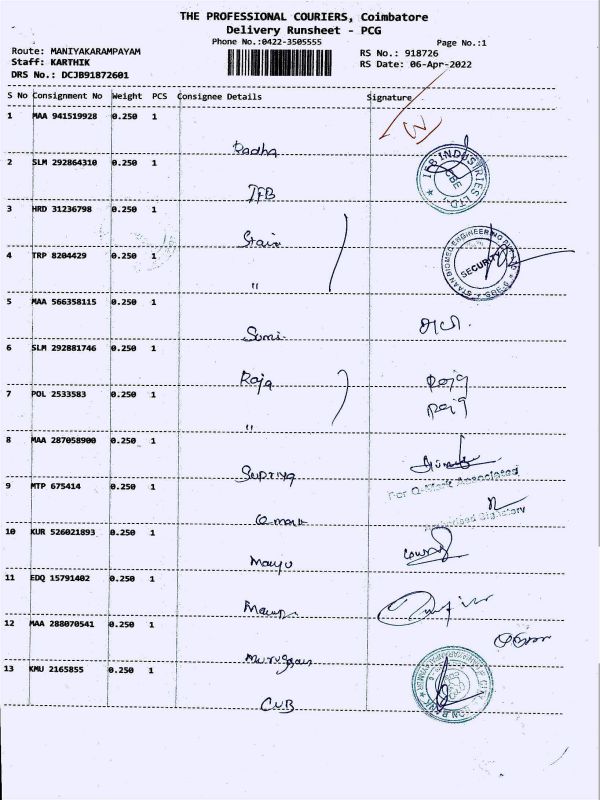 THE PROFESSIONAL COURIERS, Coimbatore
Delivery Runsheet - PCG
Phone No.:0422-3505555
Page No.:1
Route: MANIYAKARAMPAYAM
RS No.: 918726
Staff: KARTHIK
RS Date: 06-Apr-2022
DRS No.: DCJB91872601
S No Consignment No Weight PCS Consignee Details Signature
1 MAA 941519928 0.250 1
Radha
2 SLM 292864310 0.250 1
IFB INDUSTRIES LTD.
IFB
3 HRD 31236798 0.250 1
Stain
4 TRP 8204429 0.250 1
SECURITY
"
5 MAA 566358115 0.250 1
Sumi
6 SLM 292881746 0.250 1
Raja Raja
7 POL 2533583 0.250 1
Raja
"
8 MAA 287058900 0.250 1
Supriya
For Q-Mark Associated
9 MTP 675414 0.250 1
Authorised Signatory
Q mark
10 KUR 526021893 0.250 1
Mayu
11 EDQ 15791402 0.250 1
12 MAA 288070541 0.250 1
Murugan
13 KMU 2165855 0.250 1
CUB